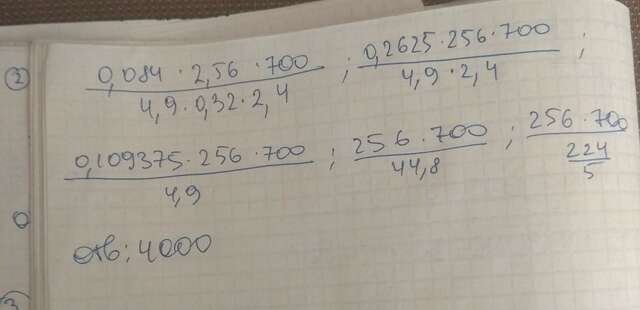 2) 0,084 · 2,56 · 700 / 4,9 · 0,32 · 2,4 ; 0,2625 · 256 · 700 / 4,9 · 2,4 ;
0,109375 · 256 · 700 / 4,9 ; 256 · 700 / 44,8 ; 256 · 700 / 224/5
отв: 4000